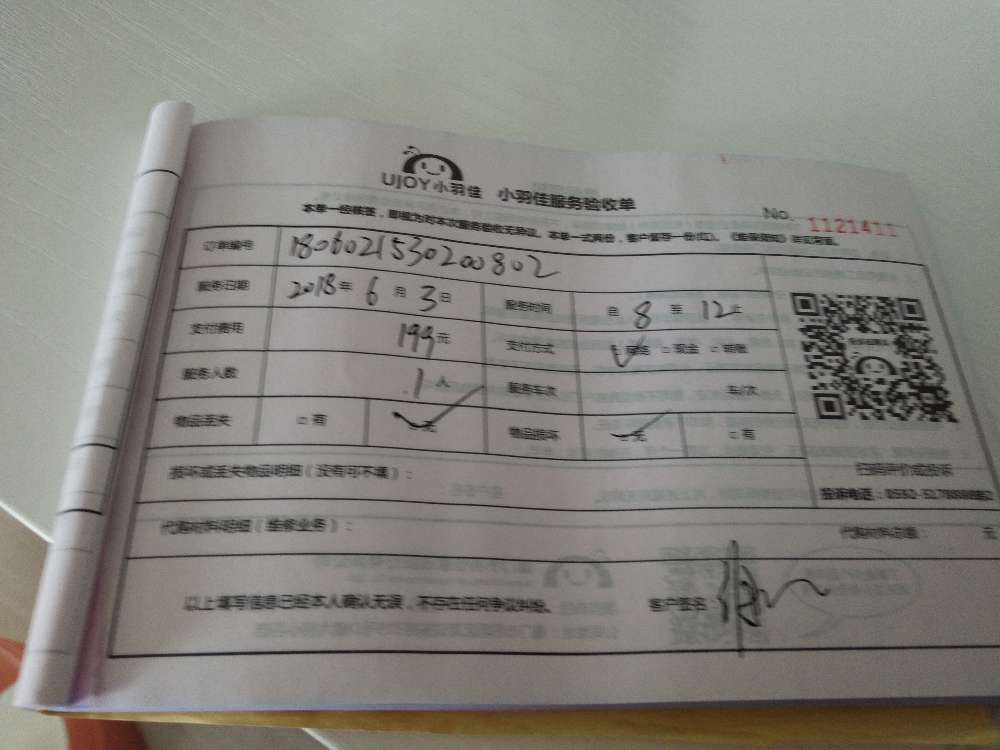 UJOY小羽佳 小羽佳服务验收单
No. 1121411
本单一经签签,即视为对本次服务验收无异议。本单一式两份,客户留存一份
订单编号 180602153020 0802
服务日期 2018年 6月 3日 服务时间 自 8 至 12止
支付费用 199元 支付方式 现金 转账
服务人数 1人 服务车次 车/次
物品丢失 有 无 物品损坏 无 有
损坏或丢失物品明细(没有可不填):
扫码评价或投诉
投诉电话:0592-5178
代购材料明细(维修业务): 代购材料总额: 元
以上填写信息已经本人确认无误,不存在任何争议纠纷。 客户签名: